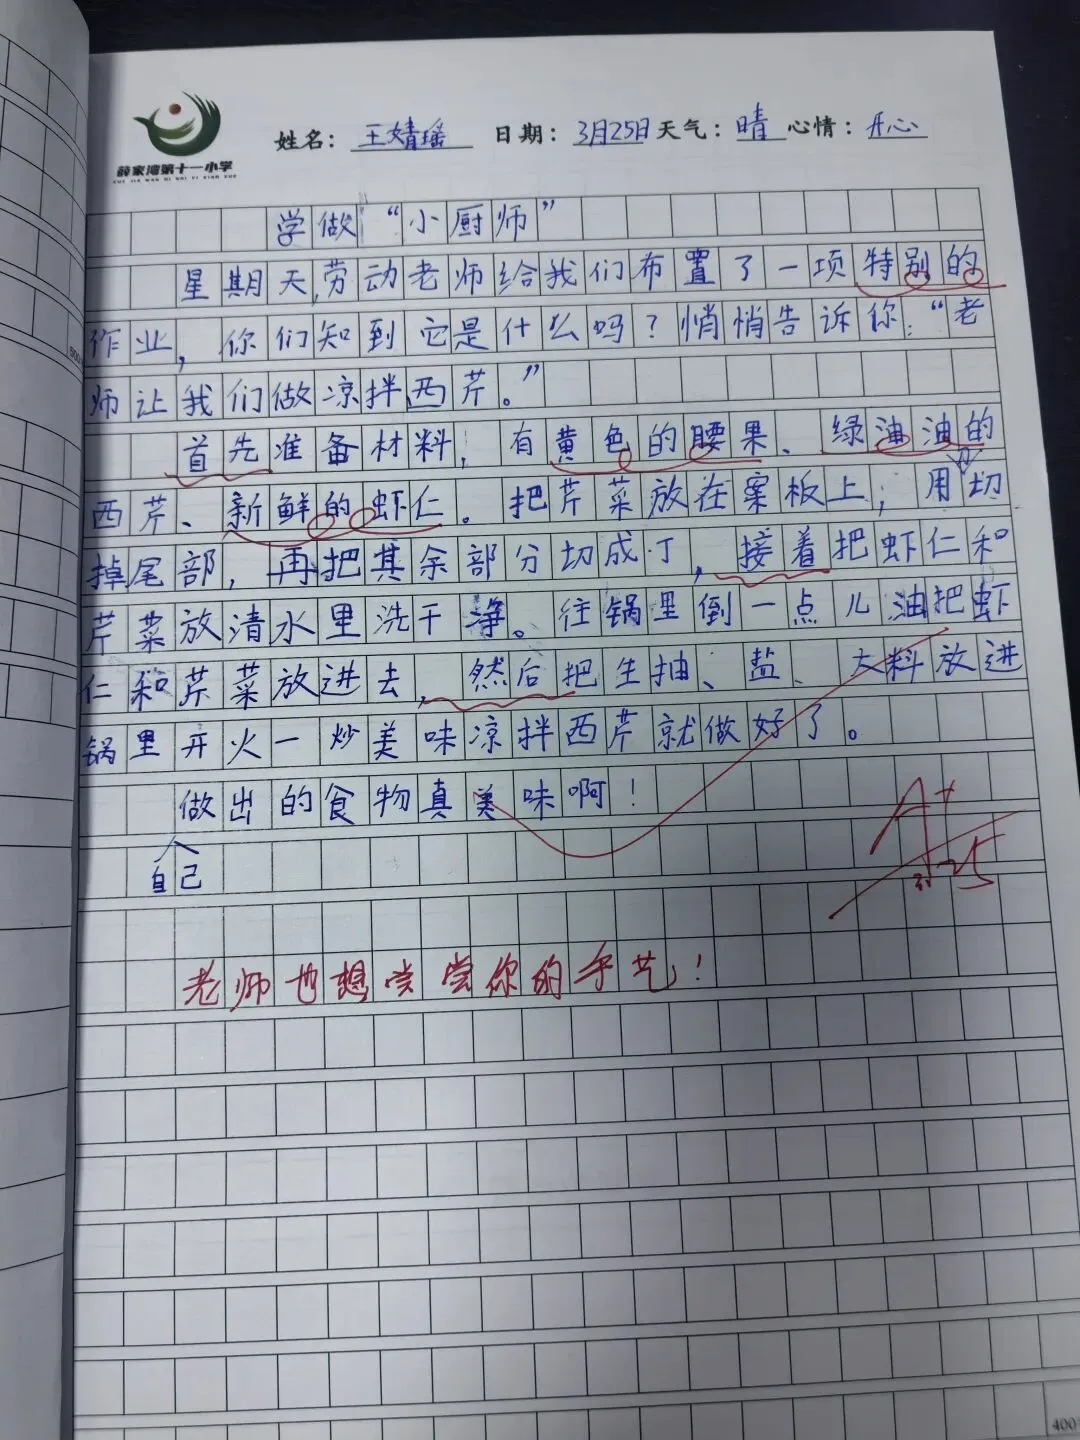 薛家湾第十一小学
XUE JIA WAN DI SHI YI XIAO XUE
姓名：王婧瑶 日期：3月25日 天气：晴 心情：开心
学做“小厨师”
星期天,劳动老师给我们布置了一项特别的
作业，你们知到它是什么吗？悄悄告诉你：“老
师让我们做凉拌西芹。”
首先准备材料；有黄色的腰果、绿油油的
西芹、新鲜的虾仁。把芹菜放在案板上；用切
掉尾部，再把其余部分切成丁，接着把虾仁和
芹菜放清水里洗干净。往锅里倒一点儿油把虾
仁和芹菜放进去，然后把生抽、盐、大料放进
锅里开火一炒美味凉拌西芹就做好了。
做出的食物真美味啊！
自己
A+
3.25
老师也想尝尝你的手艺！
400